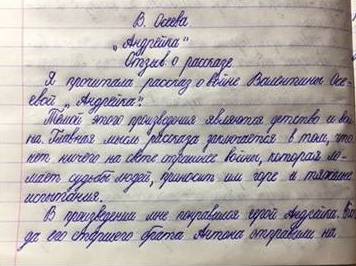 В. Осеева
„Андрейка"
Отзыв о рассказе
Я прочитала рассказ о войне Валентины Осе-
евой „Андрейка".
Темой этого произведения являются детство и вой
на. Главная мысль рассказа заключается в том, что
нет ничего на свете страшнее войны, которая ло-
мает судьбы людей, приносит им горе и тяжкие
испытания.
В произведении мне понравился герой Андрейка. Ког
да его старшего брата Антона отправили на